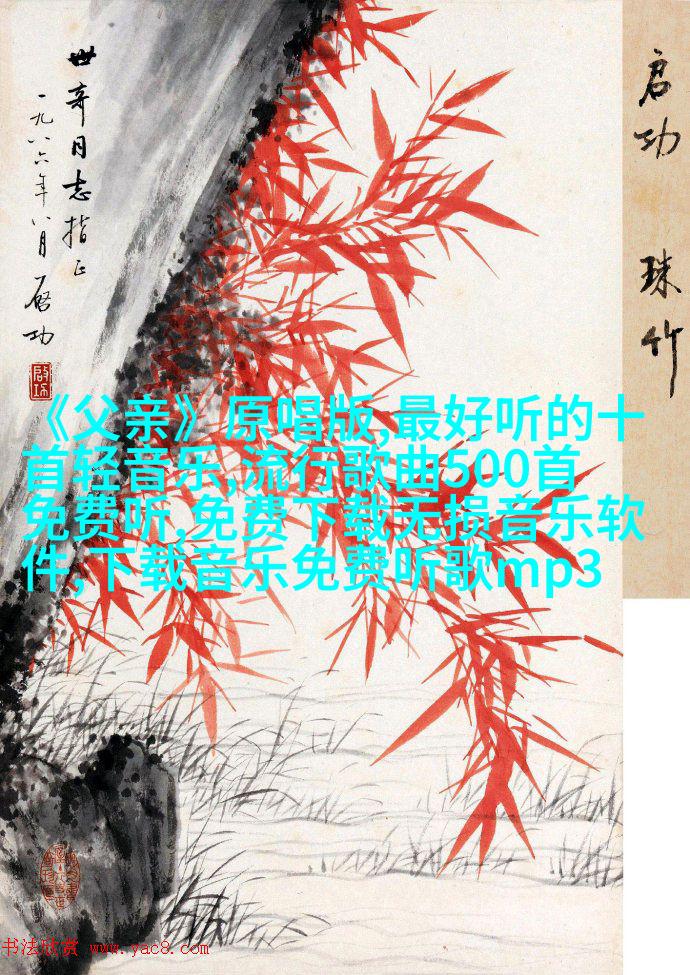 世奇同志指正
一九八六年八月启功
启功
启功 珠竹
《父亲》原唱版,最好听的十
首轻音乐,流行歌曲500首
免费听,免费下载无损音乐软
件,下载音乐免费听歌mp3
书法欣赏 www.yac8.com